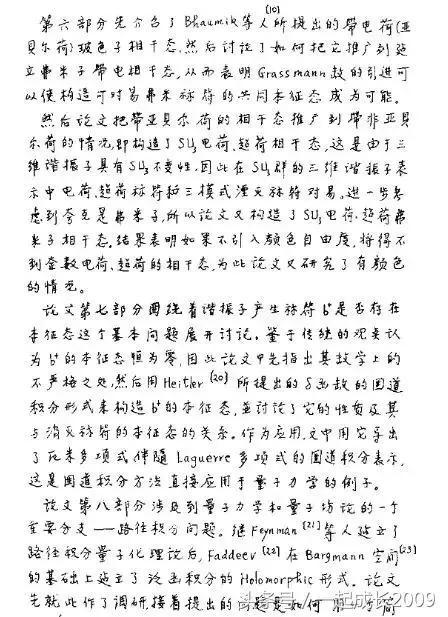 第六部分先介绍了Bhaumik等人(10)所提出的带电荷(亚
贝尔荷)玻色子相干态,然后讨论了如何把它推广到建
立弗米子带电相干态,从而表明Grassmann数的引进可
以使构造可对易弗米算符的共同本征态成为可能。
然后论文把带亚贝尔荷的相干态推广到带非亚贝
尔荷的情况,即构造了SU₃电荷、超荷相干态,这是由于三
维谐振子具有SU₃不变性,因此在SU₃群的三维谐振子表
示中电荷、超荷算符和三模式湮灭算符对易。进一步考
虑到夸克是弗米子,所以论文又构造了SU₃电荷、超荷弗
米子相干态,结果表明如果不引入颜色自由度,将得不
到整数电荷、超荷的相干态,为此论文又研究了有颜色
的情况。
论文第七部分围绕着谐振子产生算符b⁺是否存在
本征态这个基本问题展开讨论。鉴于传统的观点认
为b⁺的本征态恒为零,因此论文中先指出其数学上的
不严格之处,然后用Heitler(20)所提出的δ函数的围道
积分形式来构造b⁺的本征态,並讨论了它的性质及其
与消灭算符的本征态的关系。作为应用,文中用它导出
了厄米多项式伴随Laguerre多项式的围道积分表示,
这是围道积分方法直接应用于量子力学的例子。
论文第八部分涉及到量子力学和量子场论的一个
重要分支——路径积分问题。继Feynman(21)等人建立了
路径积分量子化理论后,Faddeev(22)在Bargmann空间(23)
的基础上建立了泛函积分的Holomorphic形式。论文
先就此作了调研,接着提出的问题是如何
头条号/一起成长2009